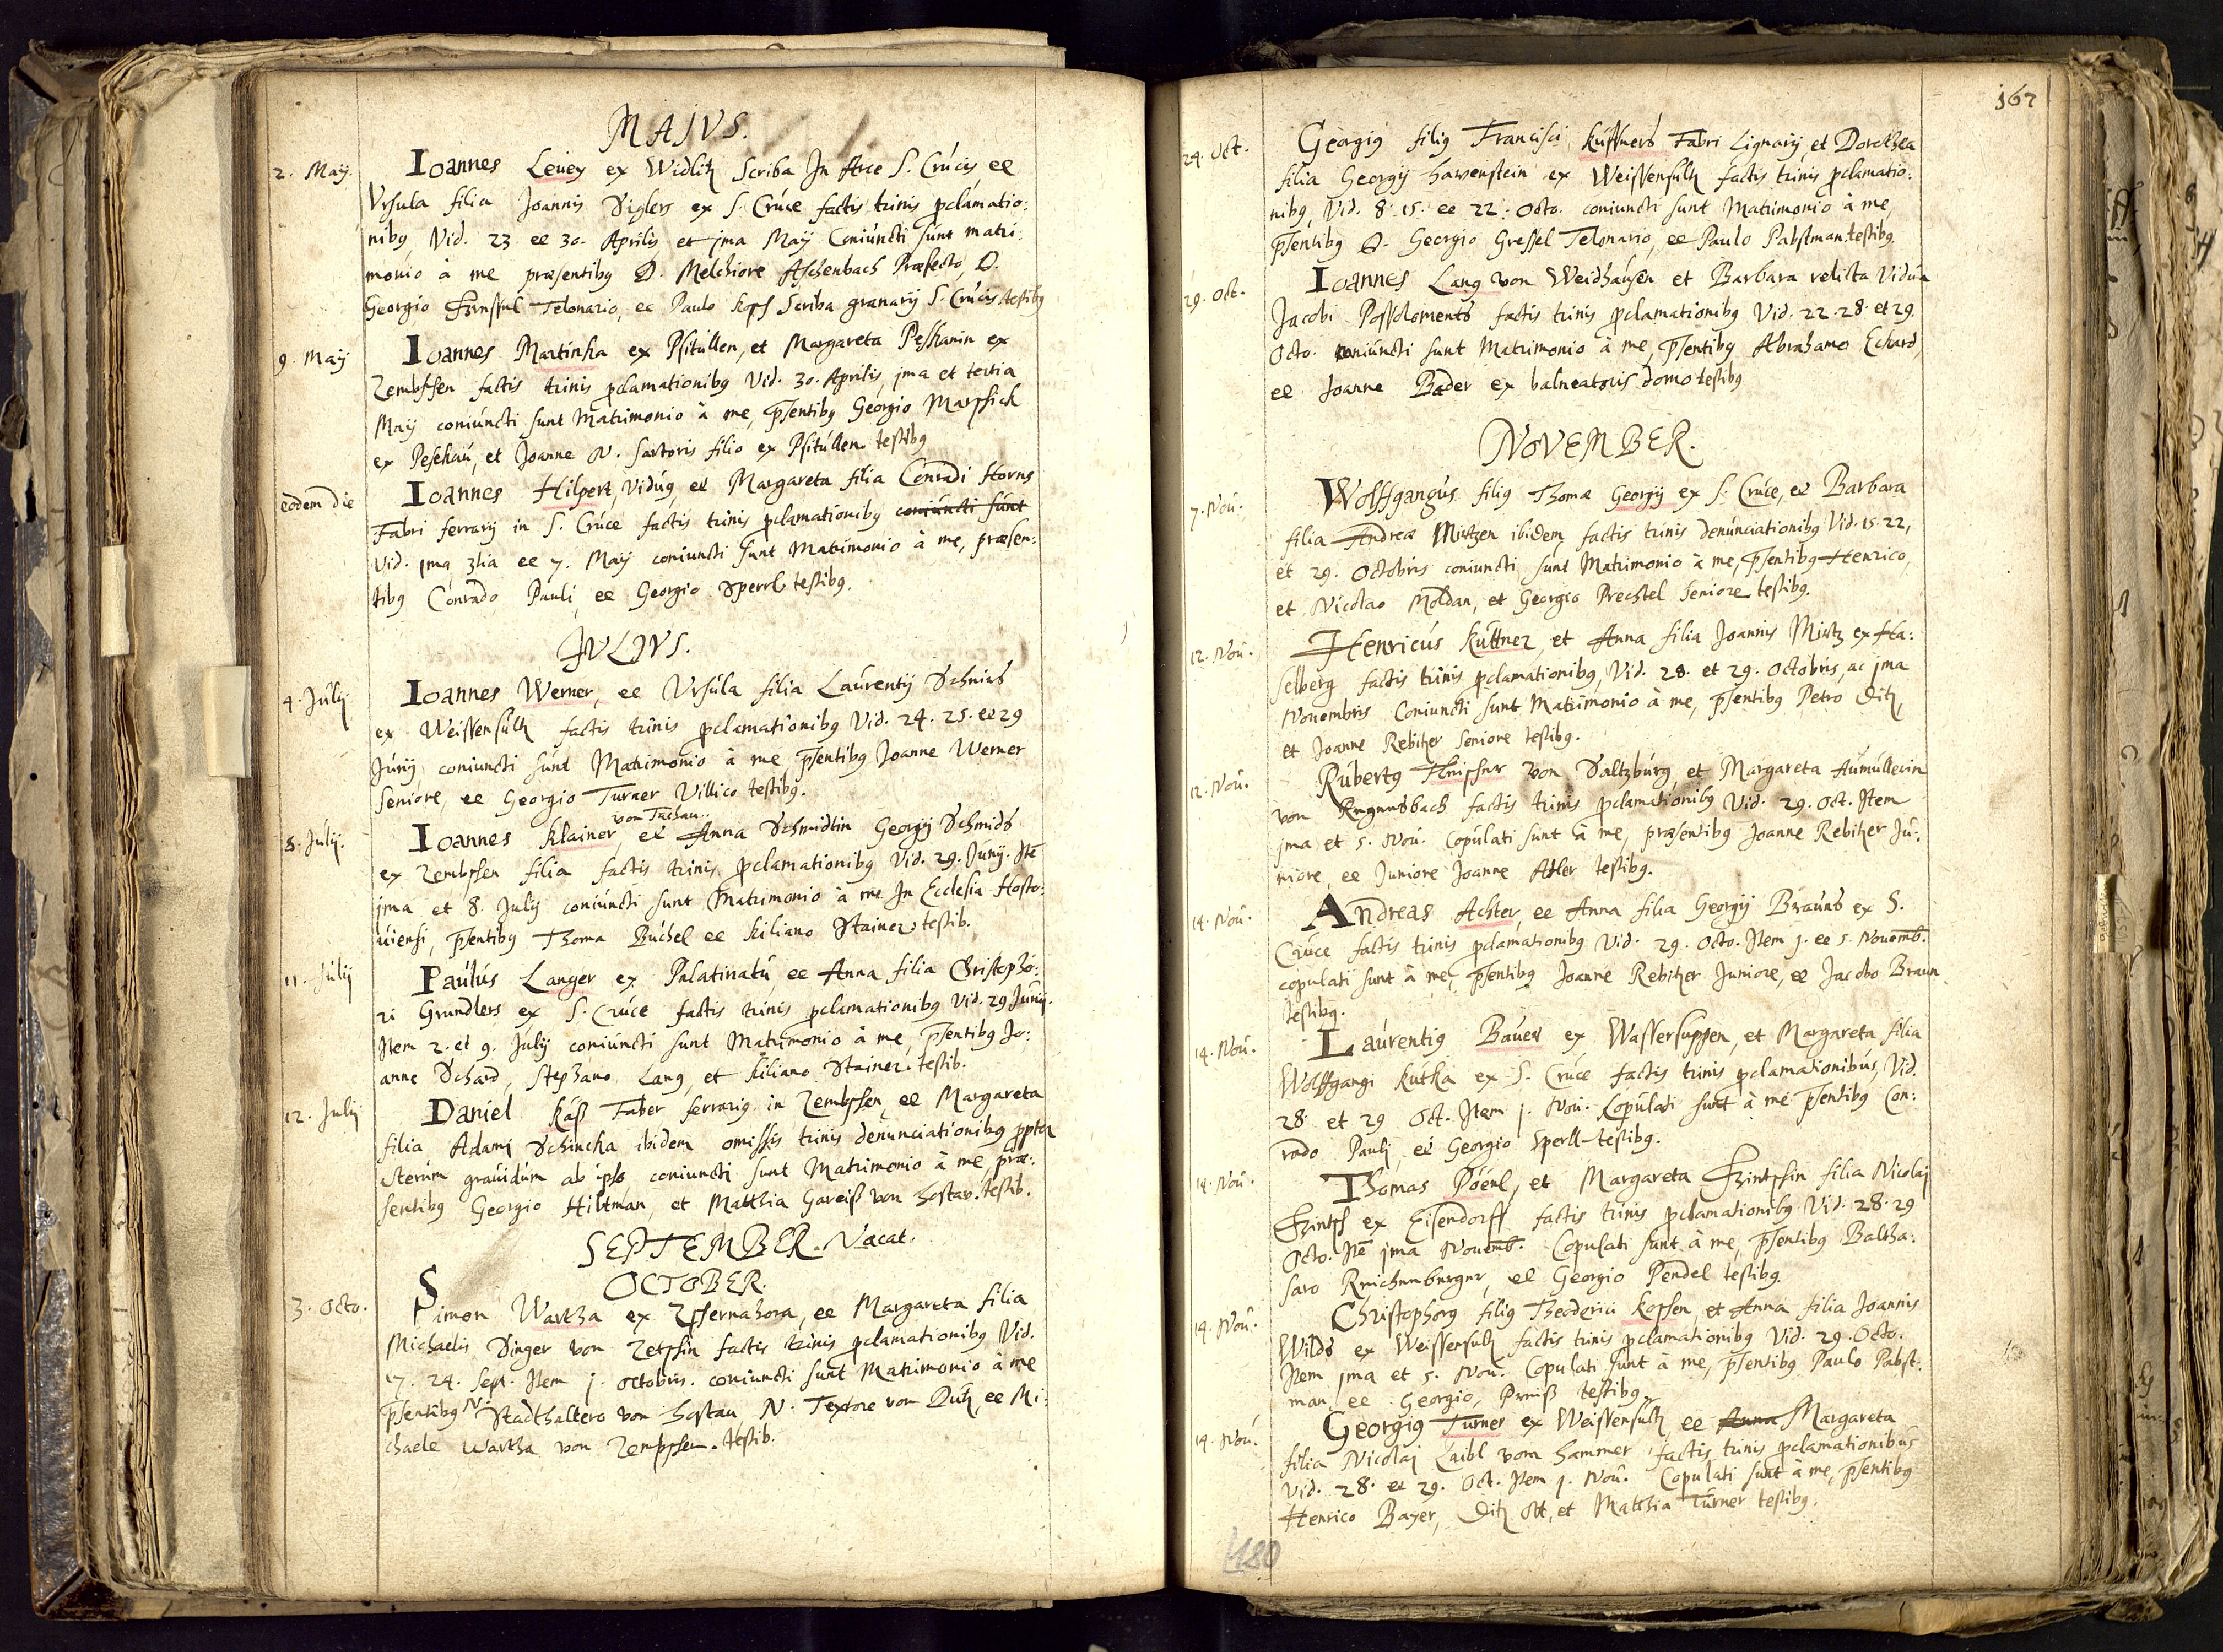 MAJVS.
2. Maÿ. Ioannes Leuey ex Widlitz Scriba In Arce S. Crucis et
Vrsula filia Joannis Siglers ex S. Cruce factis trinis pclamatio:
nibq Vid. 23 et 30. Aprilis et jma Maÿ Coniuncti sunt matri:
monio à me præsentibq D. Melchiore Aschenbach Præfecto, D.
Georgio Telonario, et Paulo Kopf Scriba granarÿ S. Crucis testibq
9. Maÿ Ioannes Martinka ex Psitullen, et Margareta Peskanin ex
Zembssen factis trinis pclamationibq Vid. 30. Aprilis jma et tertia
Maÿ coniuncti sunt Matrimonio à me, psentibq Georgio Marssick
ex Peschau, et Joanne N. Sartoris filio ex Psitullen testibq
eodem die Ioannes Hilpert, Viduq, et Margareta filia Conradi Horns
Fabri ferrarÿ in S. Cruce factis trinis pclamationibq coniuncti sunt
Vid. jma 3tia et 7. Maÿ coniuncti sunt Matrimonio à me, præsen:
tibq Conrado Pauli, et Georgio Sperrl testibq.
JVLJVS.
4. Julÿ Ioannes Werner, et Vrsula filia Laurentÿ Schnirs
ex Weissensultz factis trinis pclamationibq Vid. 24. 25. et 29
Junÿ coniuncti sunt Matrimonio à me psentibq Joanne Werner
seniore, et Georgio Turner Villico testibq.
von Tachau..
8. Julÿ. Ioannes Klainer, et Anna Schmidtin Georgÿ Schmids
ex Zembssen filia factis trinis pclamationibq Vid. 29. Junÿ. Itē
jma et 8. Julÿ coniuncti sunt Matrimonio à me In Ecclesia Hosto:
uiensi, psentibq Thoma Buchel et Kiliano Stainer testib.
11. Julÿ Paulus Langer ex Palatinatu, et Anna filia Christopho:
ri Grundlers ex S. Cruce factis trinis pclamationibq Vid. 29 Junÿ.
Item 2. et 9. Julÿ coniuncti sunt Matrimonio à me, psentibq Jo:
anne Schard, Stephano Lang, et Kiliano Stainer. testib.
12. Julÿ Daniel Käß Faber ferrariq in Zembssen et Margareta
filia Adami Schincka ibidem omissis trinis denunciationibq ppter
vterum grauidum ab ipso coniuncti sunt Matrimonio à me, præ:
sentibq Georgio Hiltman, et Matthia Gareiß von Hostav. testib.
SEPTEMBER. Vacat.
OCTOBER.
3. Octo. Simon Wartha ex Zsernahora, et Margareta filia
Michaelis Singer von Zetssin factis trinis pclamationibq Vid.
17. 24. Sept. Item j. octobris. coniuncti sunt Matrimonio à me
psentibq N. Stadthaltero von Hostau, N. Textore von Dutz, et Mi:
chaele Wartha von Zempssen. testib.
167
24. Oct. Georgiq filiq Francisci Kuffners Fabri Lignarÿ, et Dorothea
filia Georgÿ Hawenstein ex Weissensultz factis trinis pclamatio:
nibq, Vid. 8. 15. et 22. Octo. coniuncti sunt Matrimonio à me,
psentibq D. Georgio Gressel Telonario, et Paulo Pabstman testibq.
29. Oct. Ioannes Lang von Weidhausen et Barbara relicta Vidua
Jacobi Possoloments factis trinis pclamationibq Vid. 22. 28. et 29.
Octo. coniuncti sunt Matrimonio à me, psentibq Abrahamo Echard,
et Joanne Bader ex balneatoris domo testibq
NOVEMBER.
7. Nou. Wolffgangus filiq Thomæ Georgÿ ex S. Cruce, et Barbara
filia Andreæ Mirtzen ibidem factis trinis denunciationibq Vid. 15. 22,
et 29. Octobris coniuncti sunt Matrimonio à me, psentibq Henrico,
et Nicolao Moldan, et Georgio Prechtel Seniore testibq.
12. Nou. Henricus Kuttner, et Anna filia Joannis Mirtz ex Ha:
selberg factis trinis pclamationibq, Vid. 28. et 29. Octobris, ac jma
Nouembris Coniuncti sunt Matrimonio à me, psentibq Petro Ditz,
et Joanne Rebitzer Seniore testibq.
12. Nou. Rubertq von Saltzburg, et Margareta Aumüllerin
von factis trinis pclamationibq Vid. 29. Oct. Item
jma et 5. Nou. Copulati sunt à me, præsentibq Joanne Rebitzer Ju:
niore, et Juniore Joanne Adler testibq.
14. Nou. Andreas Achter, et Anna filia Georgÿ Brauns ex S.
Cruce factis trinis pclamationibq Vid. 29. Octo. Item j. et 5. Nouemb.
copulati sunt à me, psentibq Joanne Rebitzer Juniore, et Jacobo Braun
testibq.
14. Nou. Laurentiq Bauer ex Wassersuppen, et Margareta filia
Wolffgangi Kutka ex S. Cruce factis trinis pclamationibus, Vid.
28. et 29 Oct. Item j. Nou. Copulati sunt à me psentibq Con:
rado Pauli, et Georgio Sperll testibq.
14. Nou. Thomas Döenl, et Margareta filia Nicolai
ex Eisendorff factis trinis pclamationibq Vid. 28. 29
Octo. Itē jma Nouemb. Copulati sunt à me, psentibq Baltha:
saro Reichenberger, et Georgio Pendel testibq.
14. Nou. Christophorq filiq Theodorici Kopsen, et Anna filia Joannis
Wilds ex Weissensultz factis trinis pclamationibq Vid. 29. Octo.
Item jma et 5. Nou. Copulati sunt à me, psentibq Paulo Pabst:
man, et Georgio, Preiß testibq.
14. Nou. Georgiq Turner ex Weissensultz, et Anna Margareta
filia Nicolai Laibl vom Hammer factis trinis pclamationibus
Vid. 28. et 29. Oct. Item j. Nou. Copulati sunt à me, psentibq
Henrico Bayer, Ditz Ott, et Matthia Turner testibq.
180